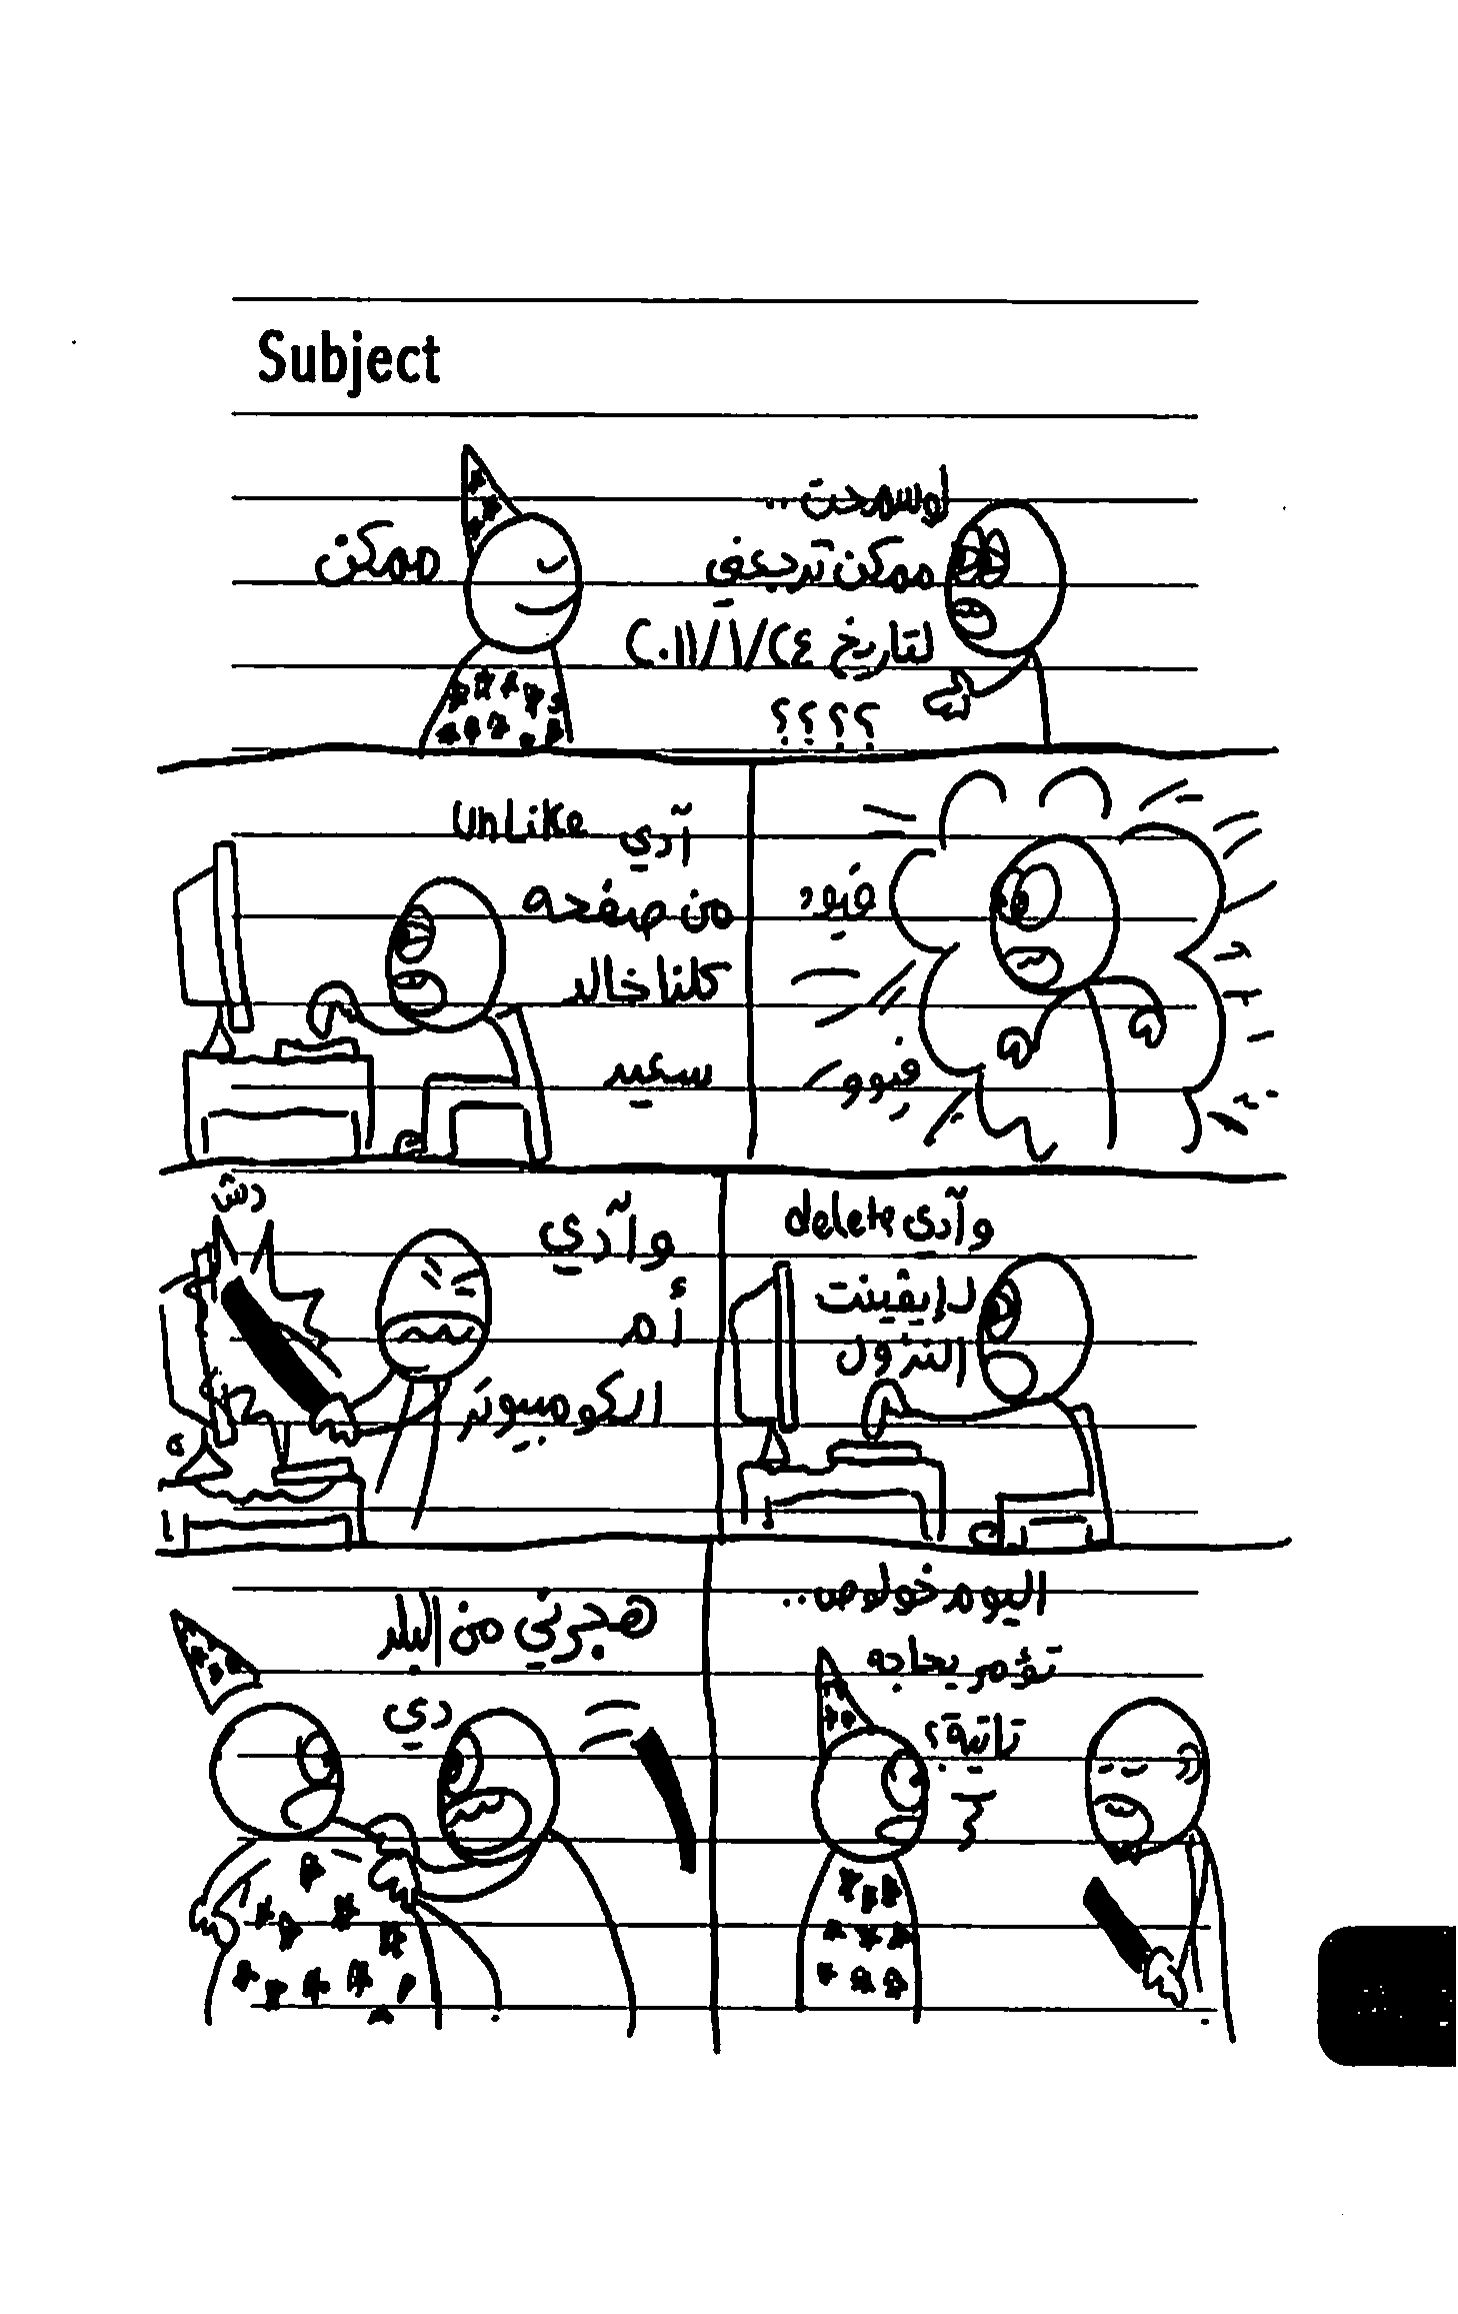 Subject
لوسمحت..
ممكن ترجعني
لتاريخ ٢٠١١/١/٢٤
؟؟؟؟
ممكن
فيوو
فيوو
آدي unlike
من صفحه
كلنا خالد
سعيد
وآدي delete
لإيڤينت
النزول
وآدي
أم
الكومبيوتر
دش
اليوم خولوص..
تؤمر بحاجه
تانية؟
هجرني من البلد
دي